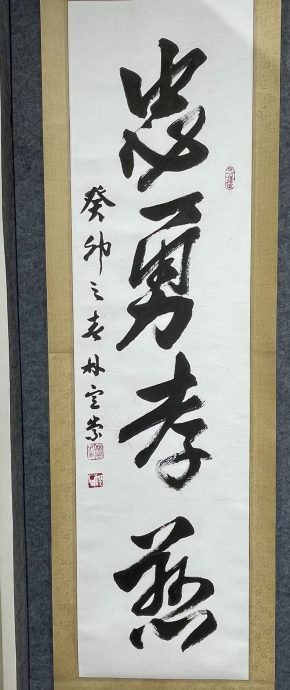 忠勇孝慈
癸卯之春林宣崇